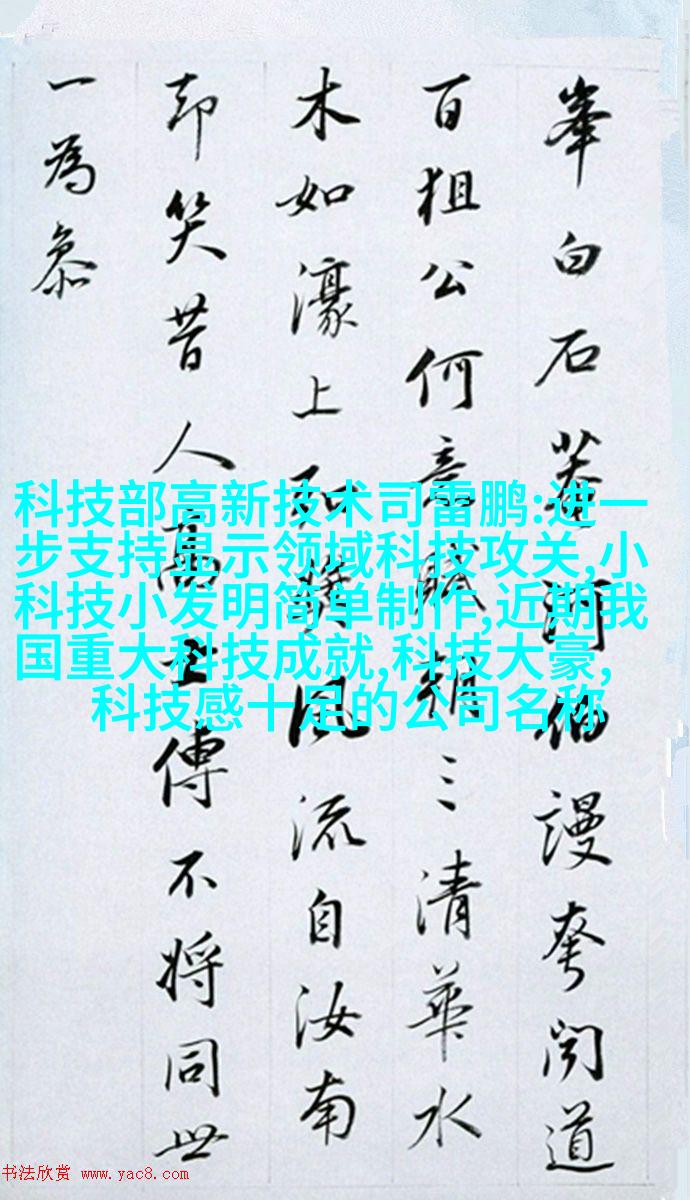 峯白石莽河伯謾夸闻道
百狙公何意賦朝三清華水
木如濠上和
風流自汝南
却笑昔人高士傳不将同世
一為叅
科技部高新技术司雷鹏:进一
步支持显示领域科技攻关,小
科技小发明简单制作,近期我
国重大科技成就,科技大豪,
科技感十足的公司名称
书法欣赏 www.yac8.com